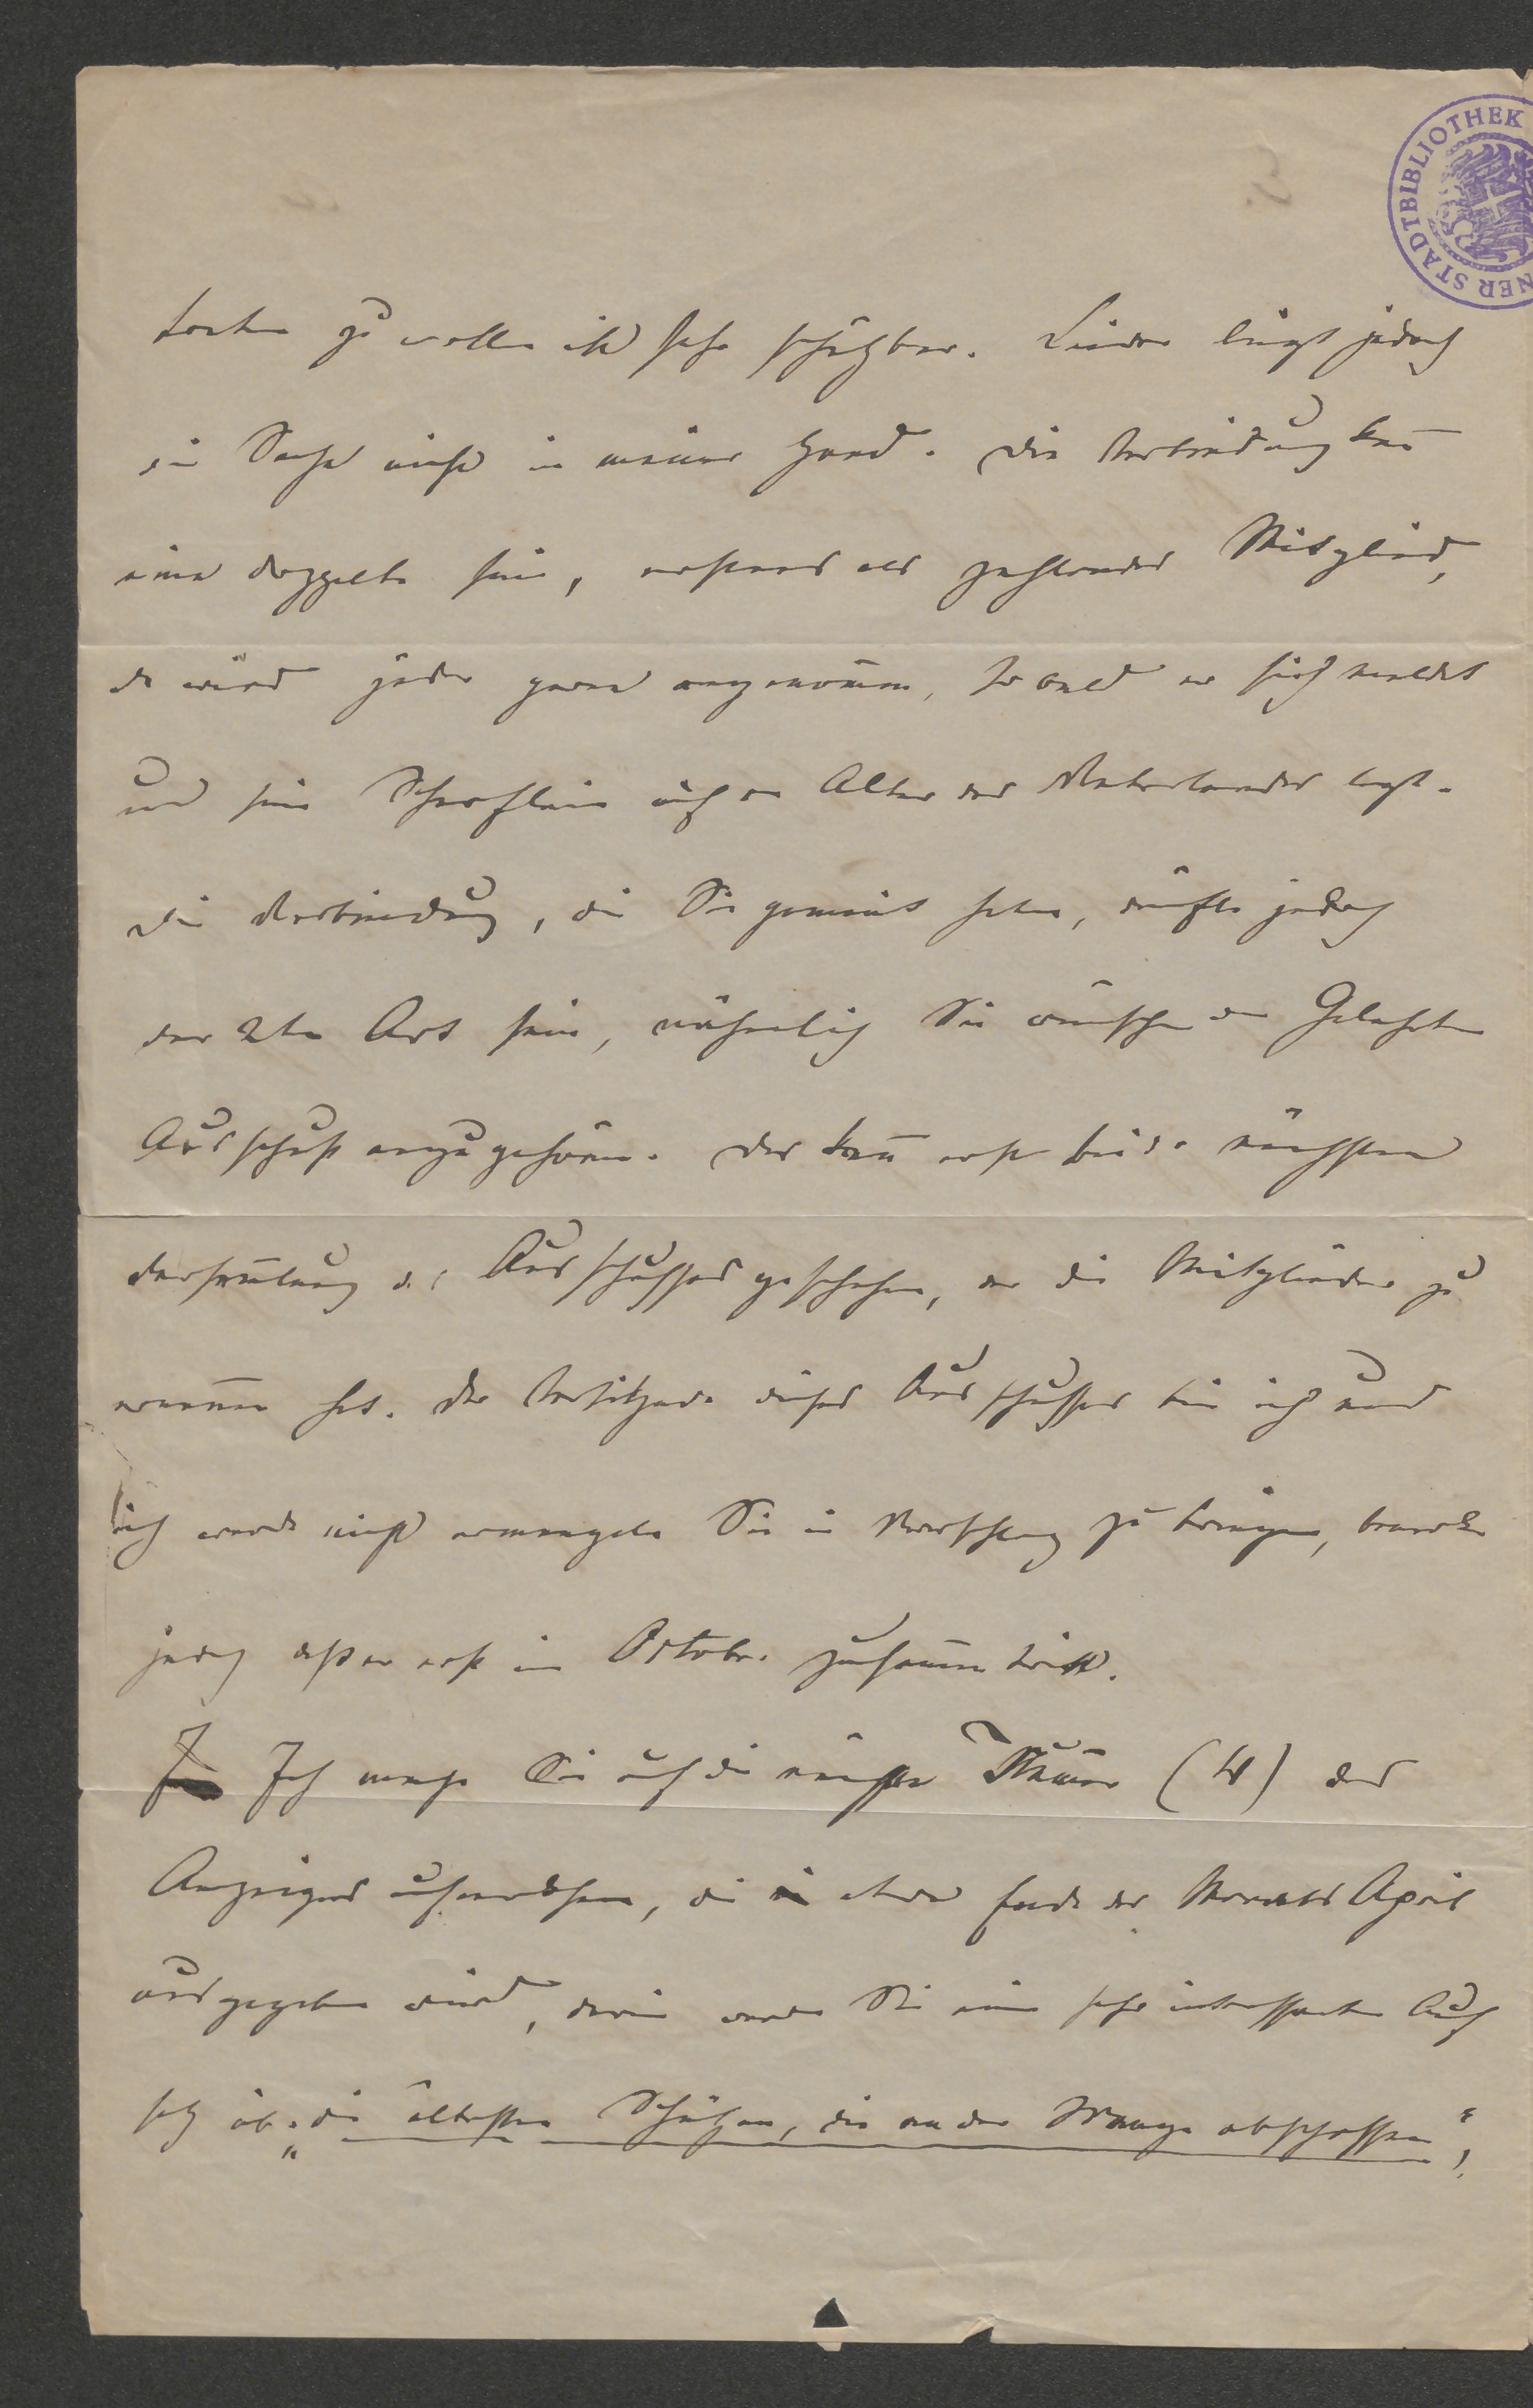 treten zu wollen ist sehr schätzbar. Leider liegt jedoch
die Sache nicht in meiner Hand. Die Verbindung kan̄
eine doppelte sein, erstens als zahlendes Mitglied,
da wird jeder gerne angenom̄en, sobald er sich meldet
und sein Scherflein auf den Altar des Vaterlandes legt.
Die Verbindung, die Sie gemeint haben, dürfte jedoch
der 2ten Art sein, nähmlich Sie wünschen dem Gelehrten
Ausschuß anzugehören. Das kan̄ erst bei der nächsten
Versam̄lung des Ausschusses geschehen, der die Mitglieder zu
ernen̄en hat. Der Vorsitzende dieses Ausschusses bin ich und
ich werde nicht ermangeln Sie in Vorschlag zu bringen, bemerke
jedoch daß er erst im October zusam̄en tritt.
Ich mache Sie auf die nächste Num̄er (4) des
Anzeigers aufmerksam, die etwa Ende des Monats April
ausgegeben wird, darin werden Sie einen sehr interessanten Auf
satz üb. „die ältesten Schützen, die von der Wange abschossen",
STADTBIBLIOTHEK